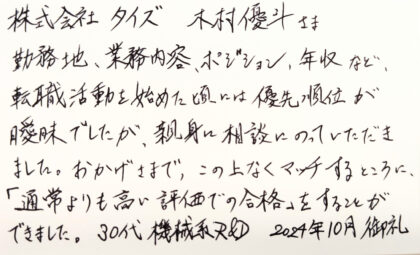 株式会社 タイズ 木村優斗さま
勤務地、業務内容、ポジション、年収など、
転職活動を始めた頃には優先順位が
曖昧でしたが、親身に相談にのっていただき
ました。おかげさまで、この上なくマッチするところに、
「通常よりも高い評価での合格」をすることが
できました。 30代 機械系R&D 2024年10月 御礼